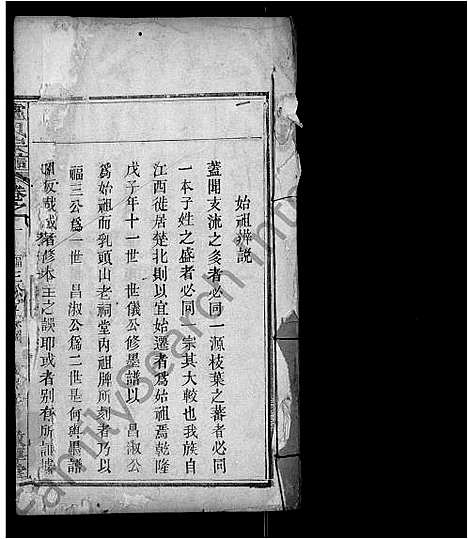 始祖辨說
蓋聞支流之多者必同一源枝葉之蕃者必同
一本子姓之盛者必同一宗其大較也我族自
江西徙居楚北則以宜始遷者為始祖焉乾隆
戊子年十一世 世儀公修墨譜以 昌淑公
為始祖而乳頭山老祠堂內祖牌所刻者乃以
福三公為一世 昌淑公為二世是何與墨譜
或者修本主之誤耶或者别有所
卷之
FamilySearch International